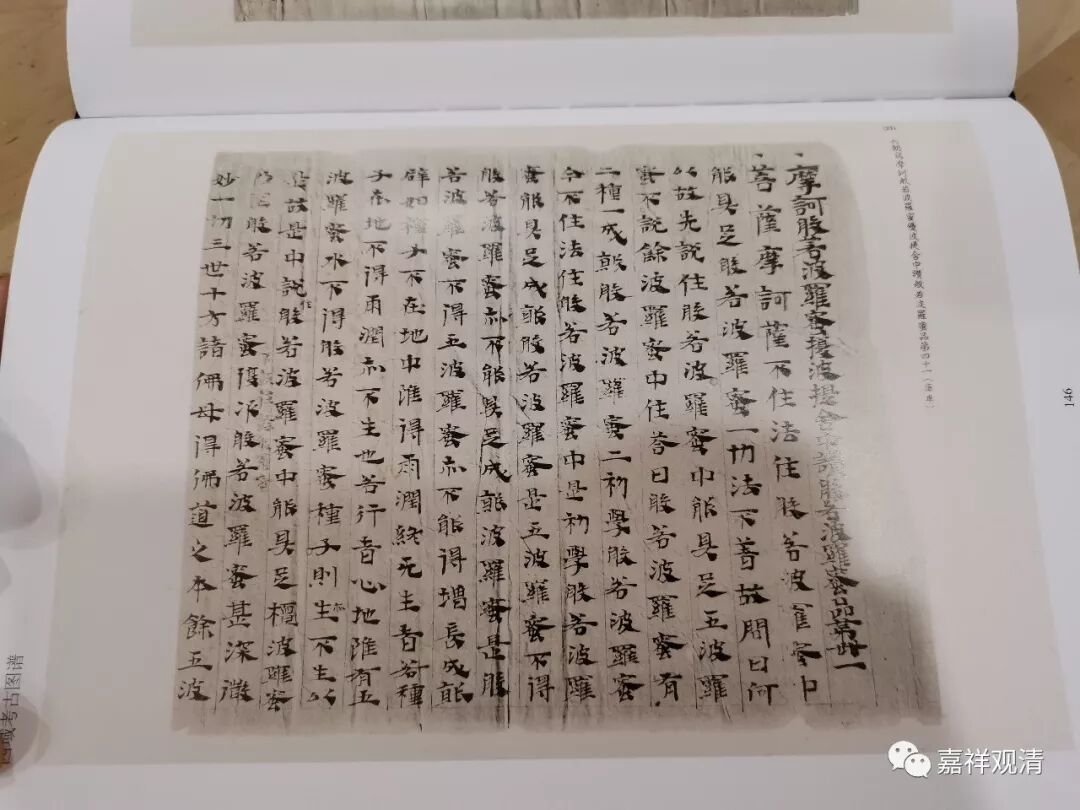 (23) 六朝寫摩訶般若波羅蜜優波提舍中般若波羅蜜品第四十一（庫車）
摩訶般若波羅蜜優波提舍中說般若波羅蜜品第卌一
菩薩摩訶薩不住法住般若波羅蜜中
能具足般若波羅蜜一切法不著故問曰何
以故先說住般若波羅蜜中能具足五波羅
蜜不說餘波羅蜜中住答曰般若波羅蜜有
二種一成就般若波羅蜜二初學般若波羅蜜
今不住法住般若波羅蜜中是初學般若波羅
蜜能具足成就般若波羅蜜是五波羅蜜不得
般若波羅蜜亦不能具足成就波羅蜜是般
若波羅蜜不得五波羅蜜亦不能得增長成就
辟如種子不在地中雖得雨潤終无生者若種
子在地不得雨潤亦不生也若行者心地雖有五
波羅蜜水不得般若波羅蜜種子則生不生以
是故是中說住般若波羅蜜中能具足檀波羅蜜
般若波羅蜜復次般若波羅蜜甚深微
妙一切三世十方諸佛母得佛道之本餘五波
146
西域考古图谱
嘉祥观清